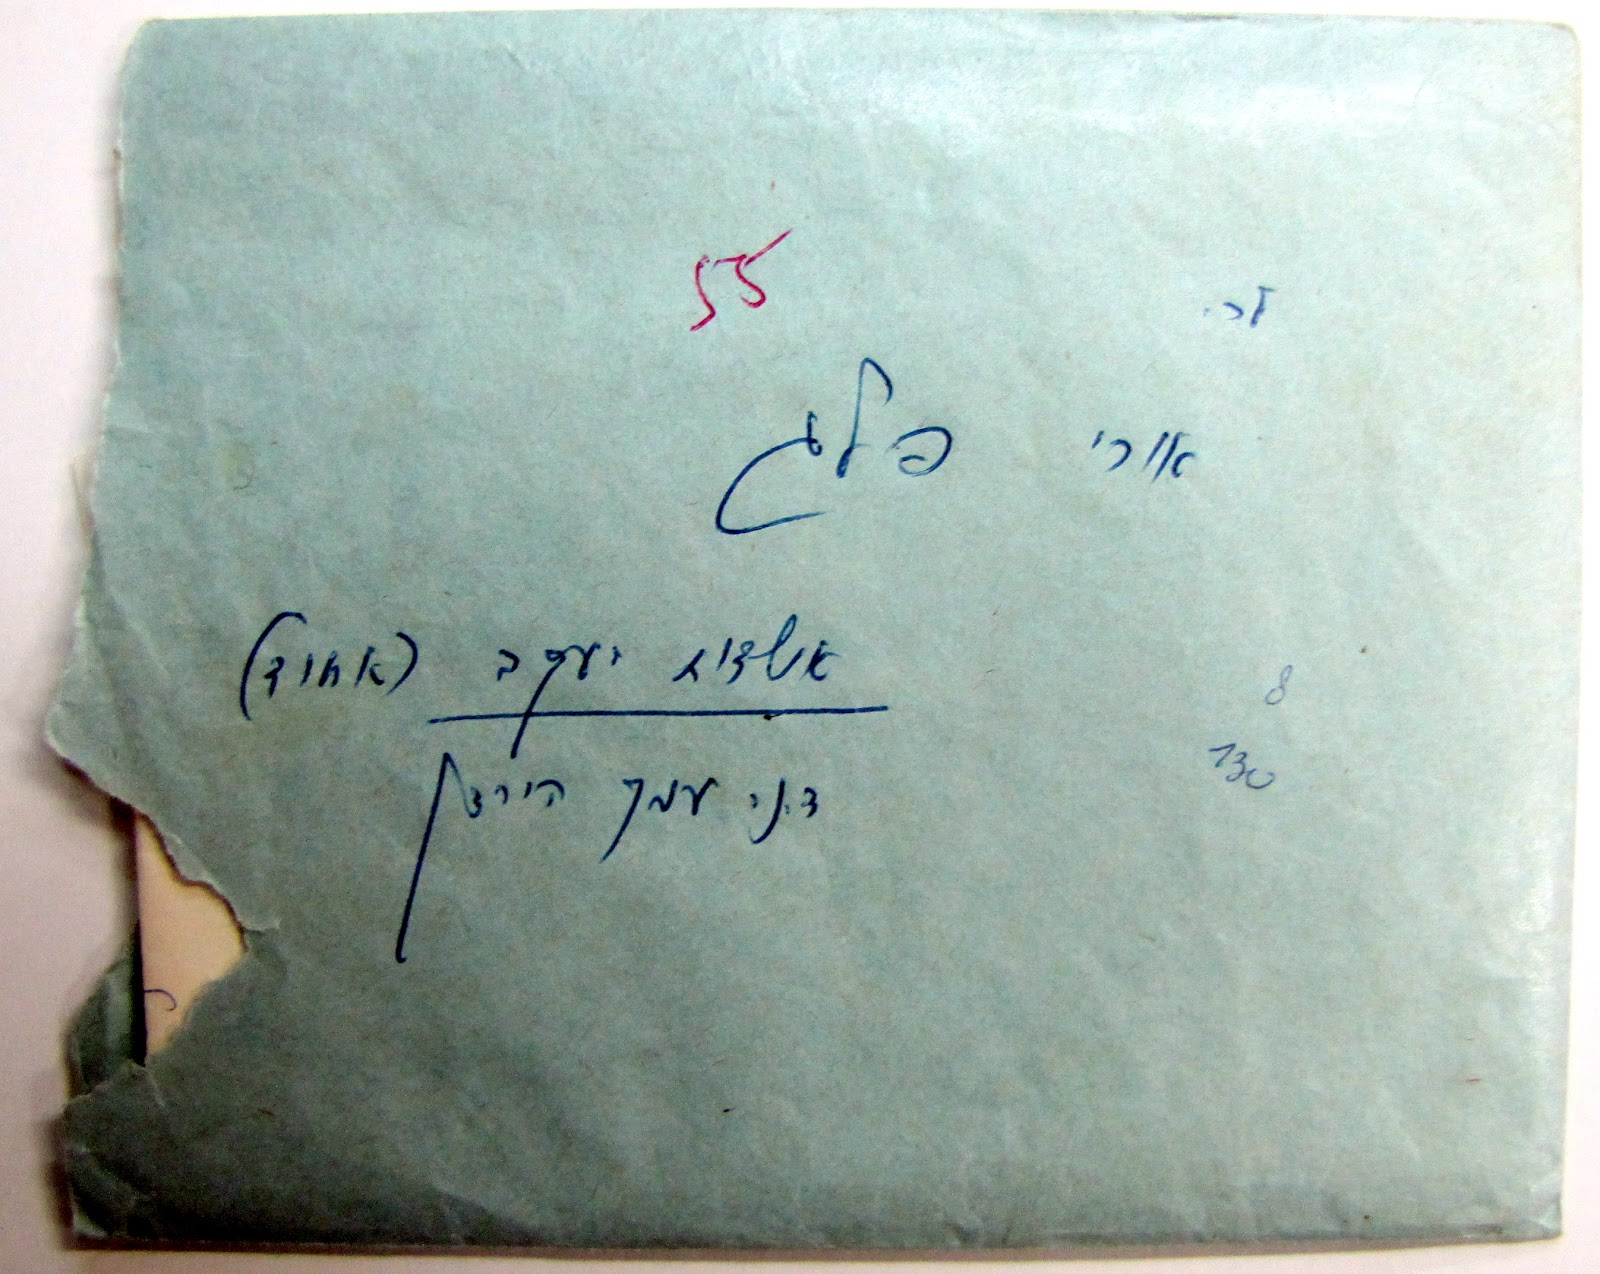 55
לכ'
אורי פלג
אשדות יעקב (אחוד)
ד.נ. עמק הירדן
8
130